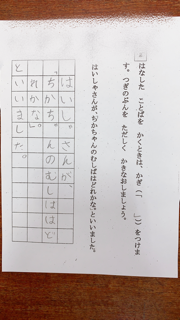 はなした ことばを かくときは、かぎ(「 」)をつけま
す。つぎのぶんを ただしく かきなおしましょう。
はいしゃさんが、ちかちゃんのむしばはどれかな。といいました。
はいし。さんが、
ちかち。んのむしばはど
れかな。
といいました。